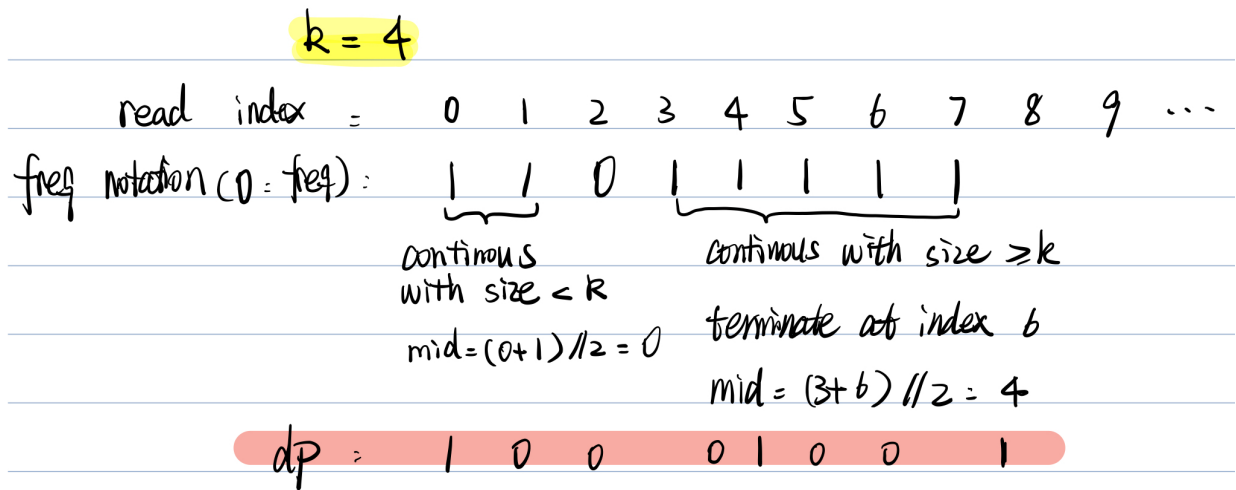 k = 4
read index = 0 1 2 3 4 5 6 7 8 9 ...
freq notation (0 = freq) : 1 1 0 1 1 1 1 1
continous
with size < k
mid = (0+1) // 2 = 0
continous with size ≥ k
terminate at index 6
mid = (3+6) // 2 = 4
dp : 1 0 0 0 1 0 0 1